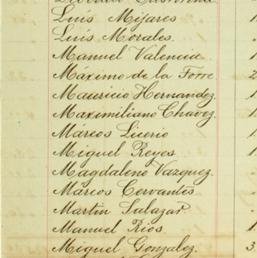 Luis Mijares
Luis Morales
Manuel Valencia
Maximo de la Torre 2
Mauricio Hernandez 1
Maximiliano Chavez 1
Marcos Licerio 1
Miguel Reyes 1
Magdaleno Vazquez
Marcos Cervantes
Martin Salazar
Manuel Rios
Miguel Gonzalez 3